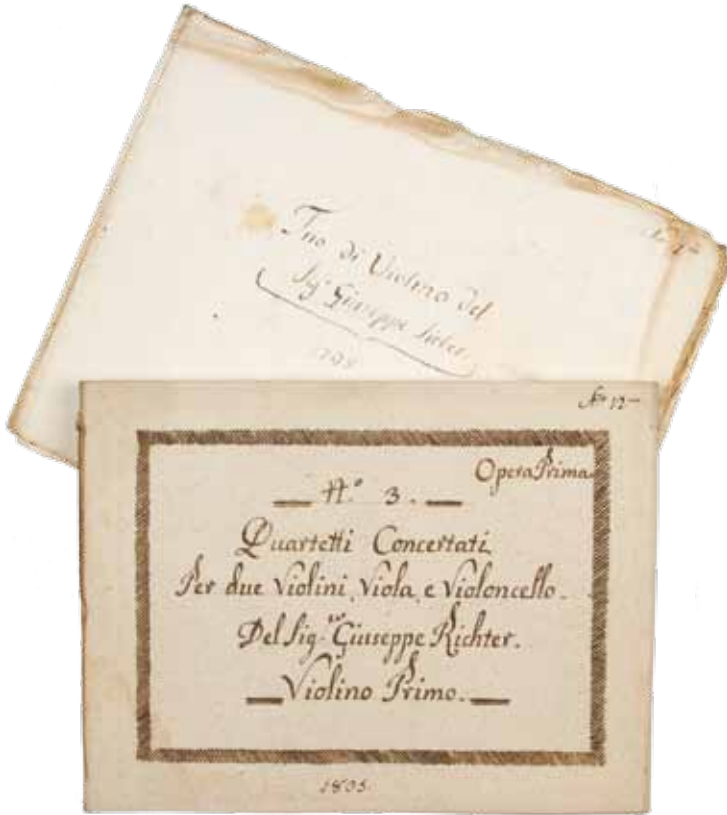 di Violino del
Sig.r Giuseppe
Opera Prima.
N.º 3.
Quartetti Concertati
Per due Violini, Viola, e Violoncello.
Del Sig.or Giuseppe Richter.
Violino Primo.
1805